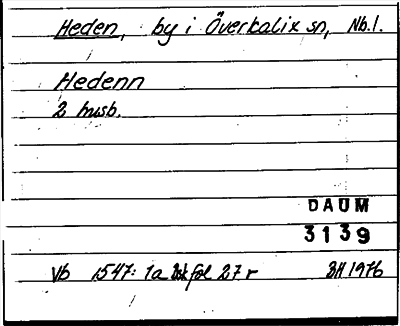 Heden, by i Överkalix sn, Nb.l.
Hedenn
2 husb.
DAUM
3139
Vb 1547: 1a fol 27 r BH 1976